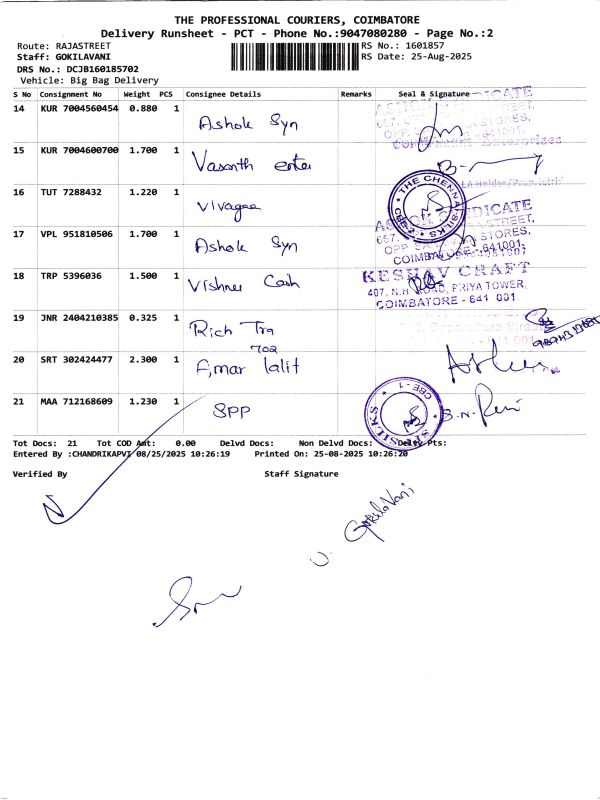 THE PROFESSIONAL COURIERS, COIMBATORE
Delivery Runsheet - PCT - Phone No.:9047080280 - Page No.:2
Route: RAJASTREET RS No.: 1601857
Staff: GOKILAVANI RS Date: 25-Aug-2025
DRS No.: DCJB160185702
Vehicle: Big Bag Delivery
S No Consignment No Weight PCS Consignee Details Remarks Seal & Signature
14 KUR 7004560454 0.880 1 Ashok Syn
15 KUR 7004600700 1.700 1 Vasanth enter
16 TUT 7288432 1.220 1 Vivagaa
THE CHENNAI SILKS CBE-2
17 VPL 951810506 1.700 1 Ashok Syn
OPP
COIMBATORE - 641001
18 TRP 5396036 1.500 1 Vishnu Cash
KESHAV CRAFT
407, N.H ROAD, PRIYA TOWER,
COIMBATORE - 641 001.
19 JNR 2404210385 0.325 1 Rich Tra
702
20 SRT 302424477 2.300 1 Amar lalit
21 MAA 712168609 1.230 1 SPP
SILKS CBE-1
B.N.
Tot Docs: 21 Tot COD Amt: 0.00 Delvd Docs: Non Delvd Docs: Delvy Pts:
Entered By :CHANDRIKAPVI 08/25/2025 10:26:19 Printed On: 25-08-2025 10:26:20
Verified By Staff Signature
U. GokilaVani